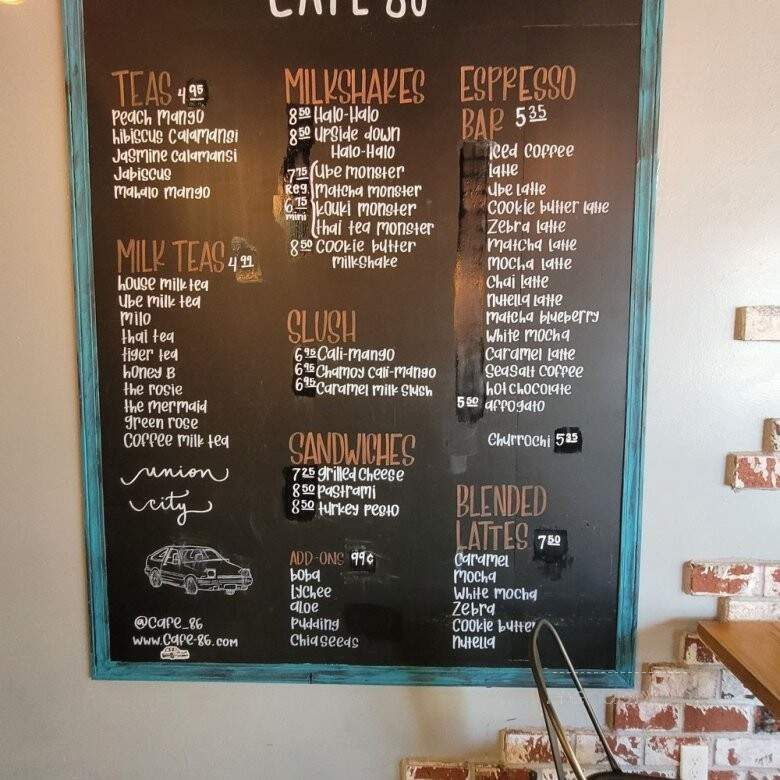 CAFE 86
TEAS 4 95
Peach Mango
hibiscus Calamansi
Jasmine calamansi
Jabiscus
Mahalo Mango
MILK TEAS 4 99
house milk tea
Ube milk tea
Milo
thai tea
tiger tea
honey B
the rosie
the mermaid
green rose
Coffee milk tea
union
city
@Cafe_86
www.Cafe-86.com
MILKSHAKES
8 50 Halo-Halo
8 50 Upside down
Halo-Halo
7 75 Ube monster
Reg. Matcha monster
6 75 Kouki monster
mini Thai tea monster
8 50 Cookie butter
milkshake
SLUSH
6 95 Cali-mango
6 95 Chamoy Cali-mango
6 95 Caramel milk Slush
SANDWICHES
7 25 grilled Cheese
8 50 Pastrami
8 50 turkey pesto
ADD-ONS 99¢
boba
lychee
aloe
Pudding
Chia seeds
ESPRESSO
BAR 5 35
Iced Coffee
latte
Ube latte
Cookie butter latte
Zebra latte
Matcha latte
Mocha latte
Chai latte
Nutella latte
Matcha blueberry
White Mocha
Caramel latte
Seasalt Coffee
hot chocolate
5 50 affogato
Churrochi 5 35
BLENDED
LATTES 7 50
Caramel
Mocha
White mocha
Zebra
Cookie butter
Nutella